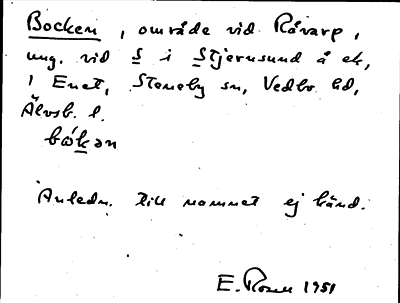 Bocken, område vid Råvarp,
ung. vid S i Stjernsund å ek,
1 Enet, Steneby sn, Vedbo hd,
Älvsb. l.
båkən
Anledn. till namnet ej känd.
E. Rosen 1951